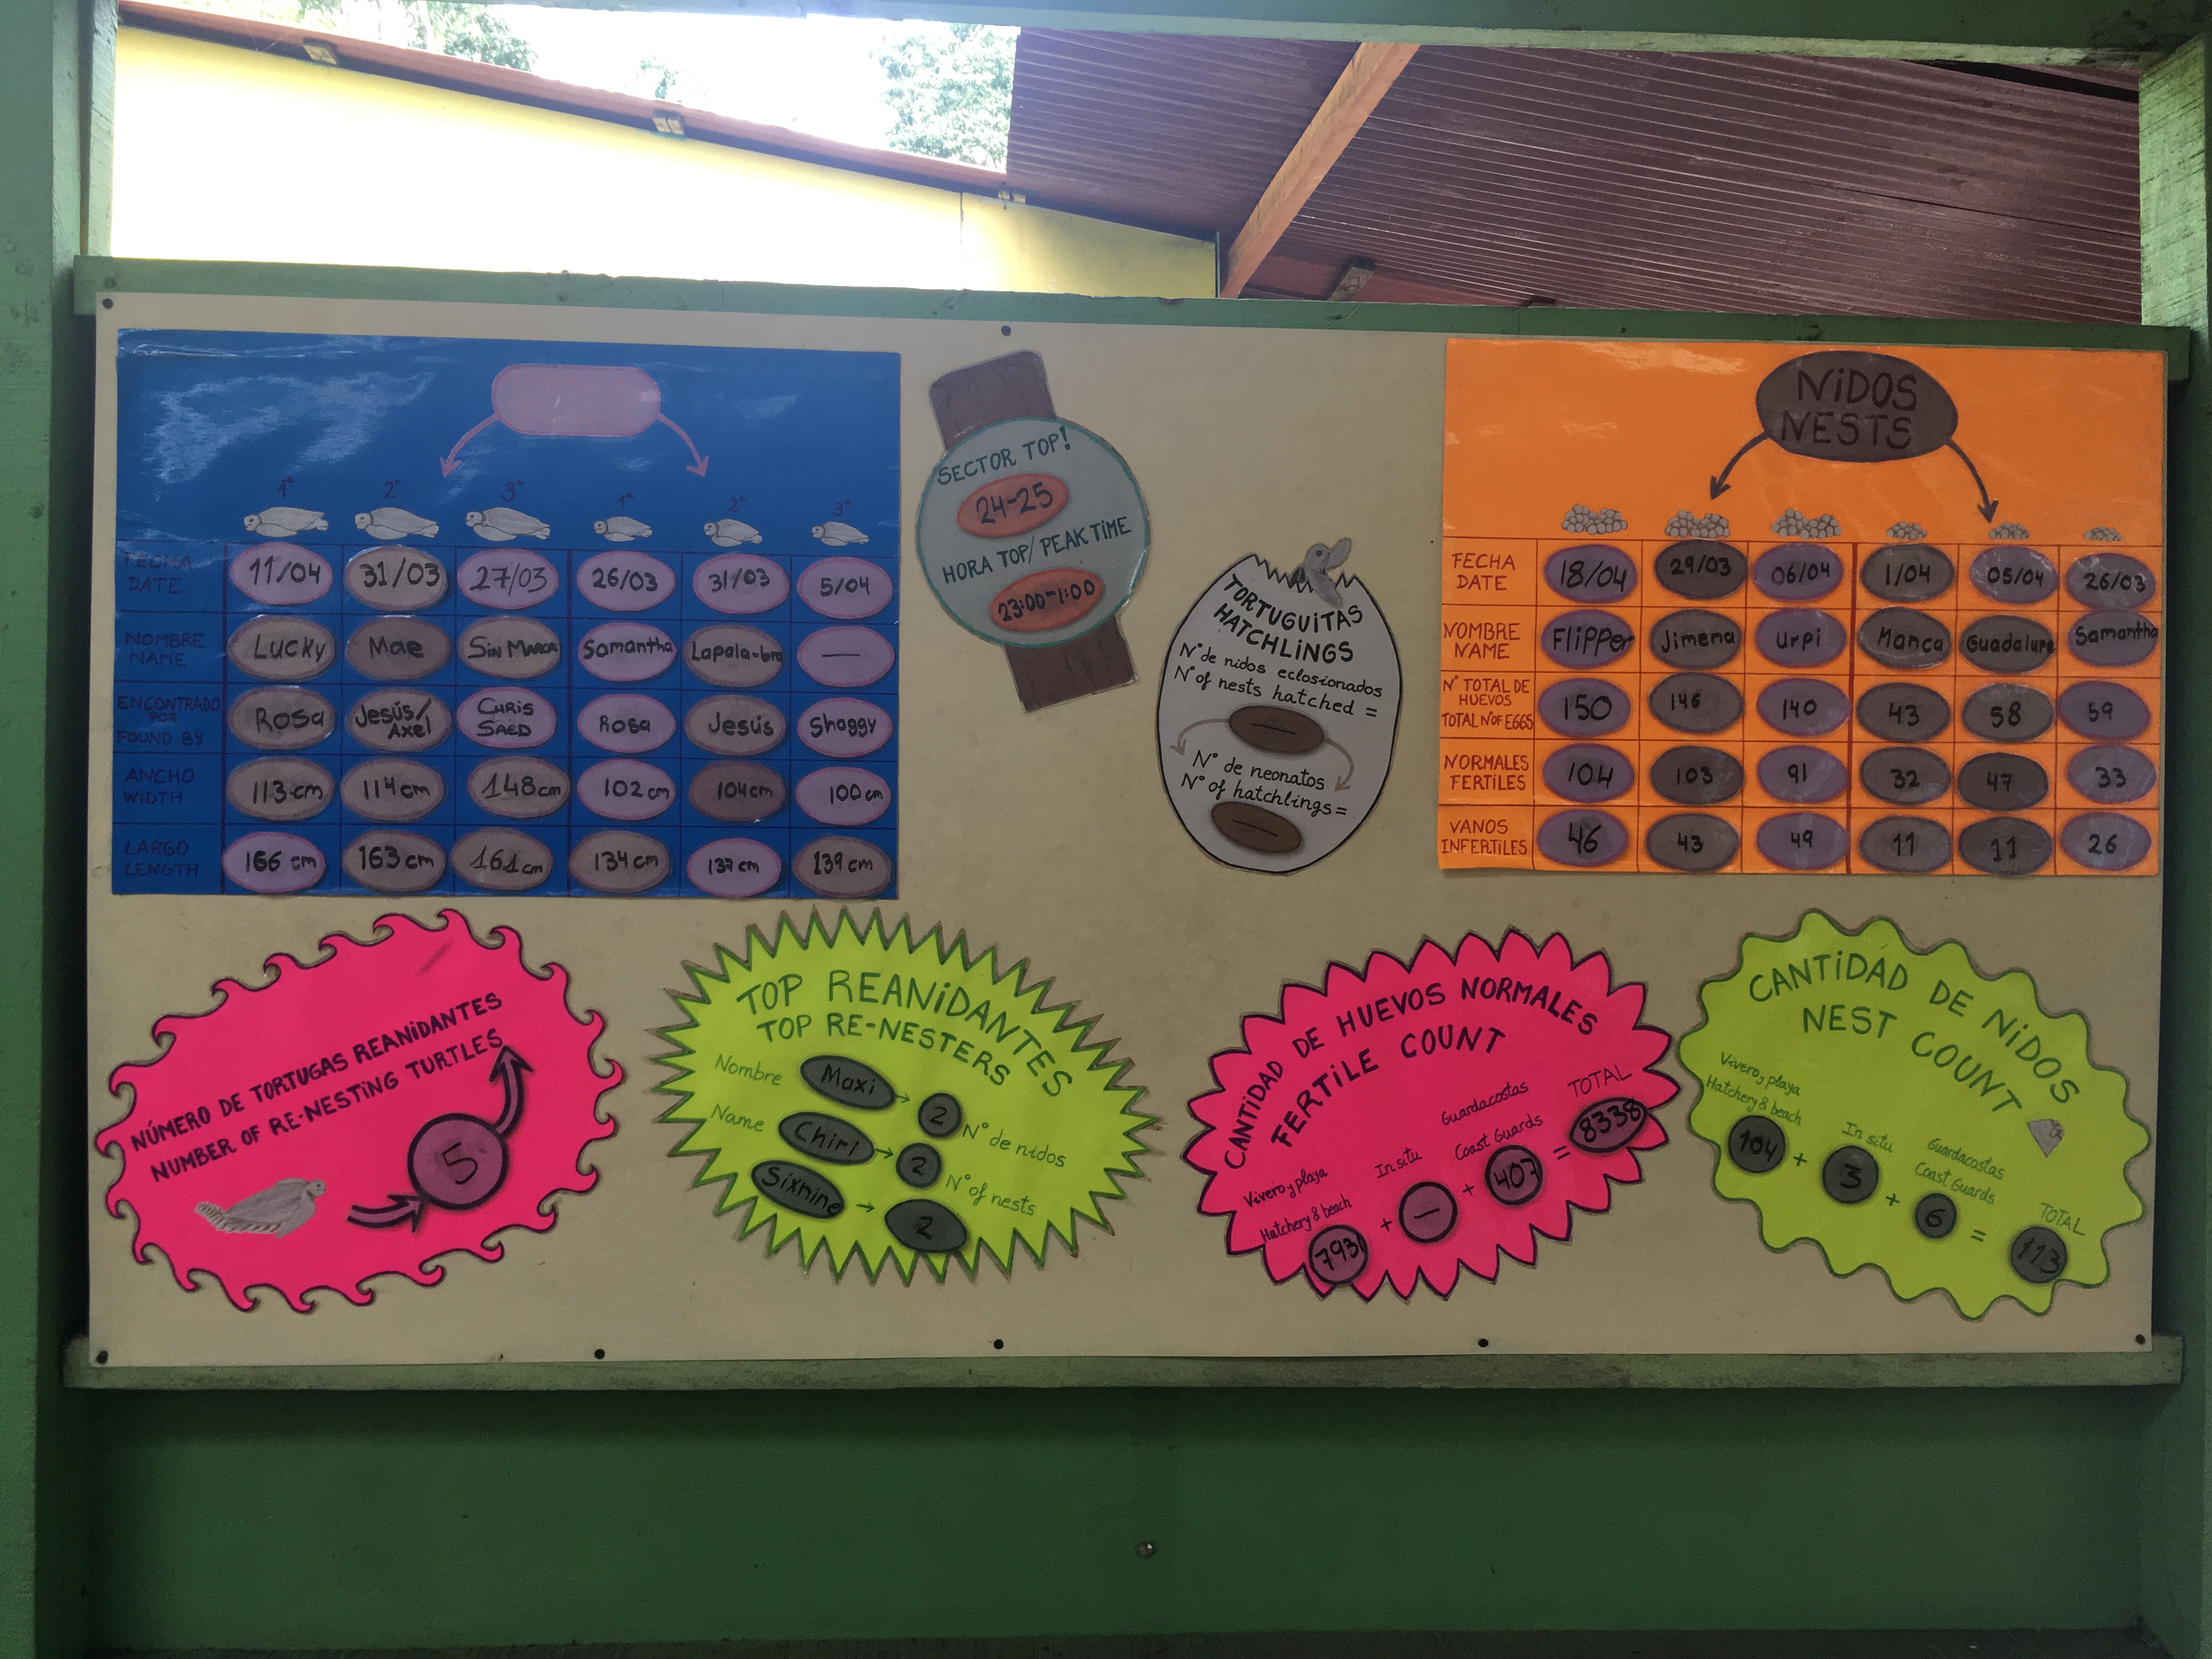 1ª 2ª 3ª 1ª 2ª 3ª
FECHA
DATE
11/04 31/03 27/03 26/03 31/03 5/04
NOMBRE
NAME
Lucky Mae Sin Marca Samantha 
ENCONTRADO
POR
FOUND BY
Rosa Jesús/
Axel
Chris
Saed
Rosa Jesús Shaggy
ANCHO
WIDTH
113 cm 114 cm 148 cm 102 cm 104 cm 100 cm
LARGO
LENGTH
166 cm 163 cm 161 cm 134 cm 137 cm 139 cm
SECTOR TOP!
24-25
HORA TOP/ PEAK TIME
23:00-1:00
TORTUGUITAS
HATCHLINGS
N° de nidos eclosionados
N° of nests hatched =
—
N° de neonatos
N° of hatchlings =
—
NIDOS
NESTS
FECHA
DATE
18/04 29/03 06/04 1/04 05/04 26/03
NOMBRE
NAME
Flipper Jimena Urpi Manca Guadalupe Samantha
N° TOTAL DE
HUEVOS
TOTAL N° OF EGGS
150 146 140 43 58 59
NORMALES
FERTILES
104 103 91 32 47 33
VANOS
INFERTILES
46 43 49 11 11 26
NÚMERO DE TORTUGAS REANIDANTES
NUMBER OF RE-NESTING TURTLES
5
TOP REANIDANTES
TOP RE-NESTERS
Nombre Maxi → 2 N° de nidos
Name Chirl → 2 N° of nests
Sixnine → 2
CANTIDAD DE HUEVOS NORMALES
FERTILE COUNT
Vivero y playa
Hatchery & beach
7931
+
In situ
—
+
Guardacostas
Coast Guards
407
=
TOTAL
8338
CANTIDAD DE NIDOS
NEST COUNT
Vivero y playa
Hatchery & beach
104
+
In situ
3
+
Guardacostas
Coast Guards
6
=
TOTAL
113